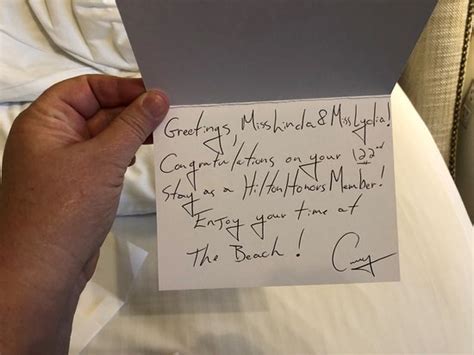 Greetings, Miss Linda & Miss Lydia!
Congratulations on your 122nd
Stay as a Hilton Honors Member!
Enjoy your time at
The Beach!